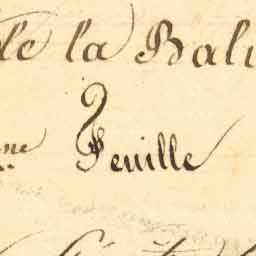 de la Bali
ne Feuille